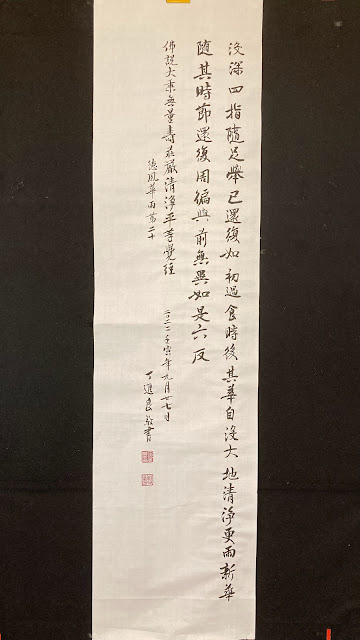 沒深四指隨足舉已還復如初過食時後其華自沒大地清淨更雨新華
隨其時節還復周徧與前無異如是六反
佛說大乘無量壽莊嚴清淨平等覺經
德風華雨第二十
二〇二二壬寅年九月廿七日
丁進良敬書